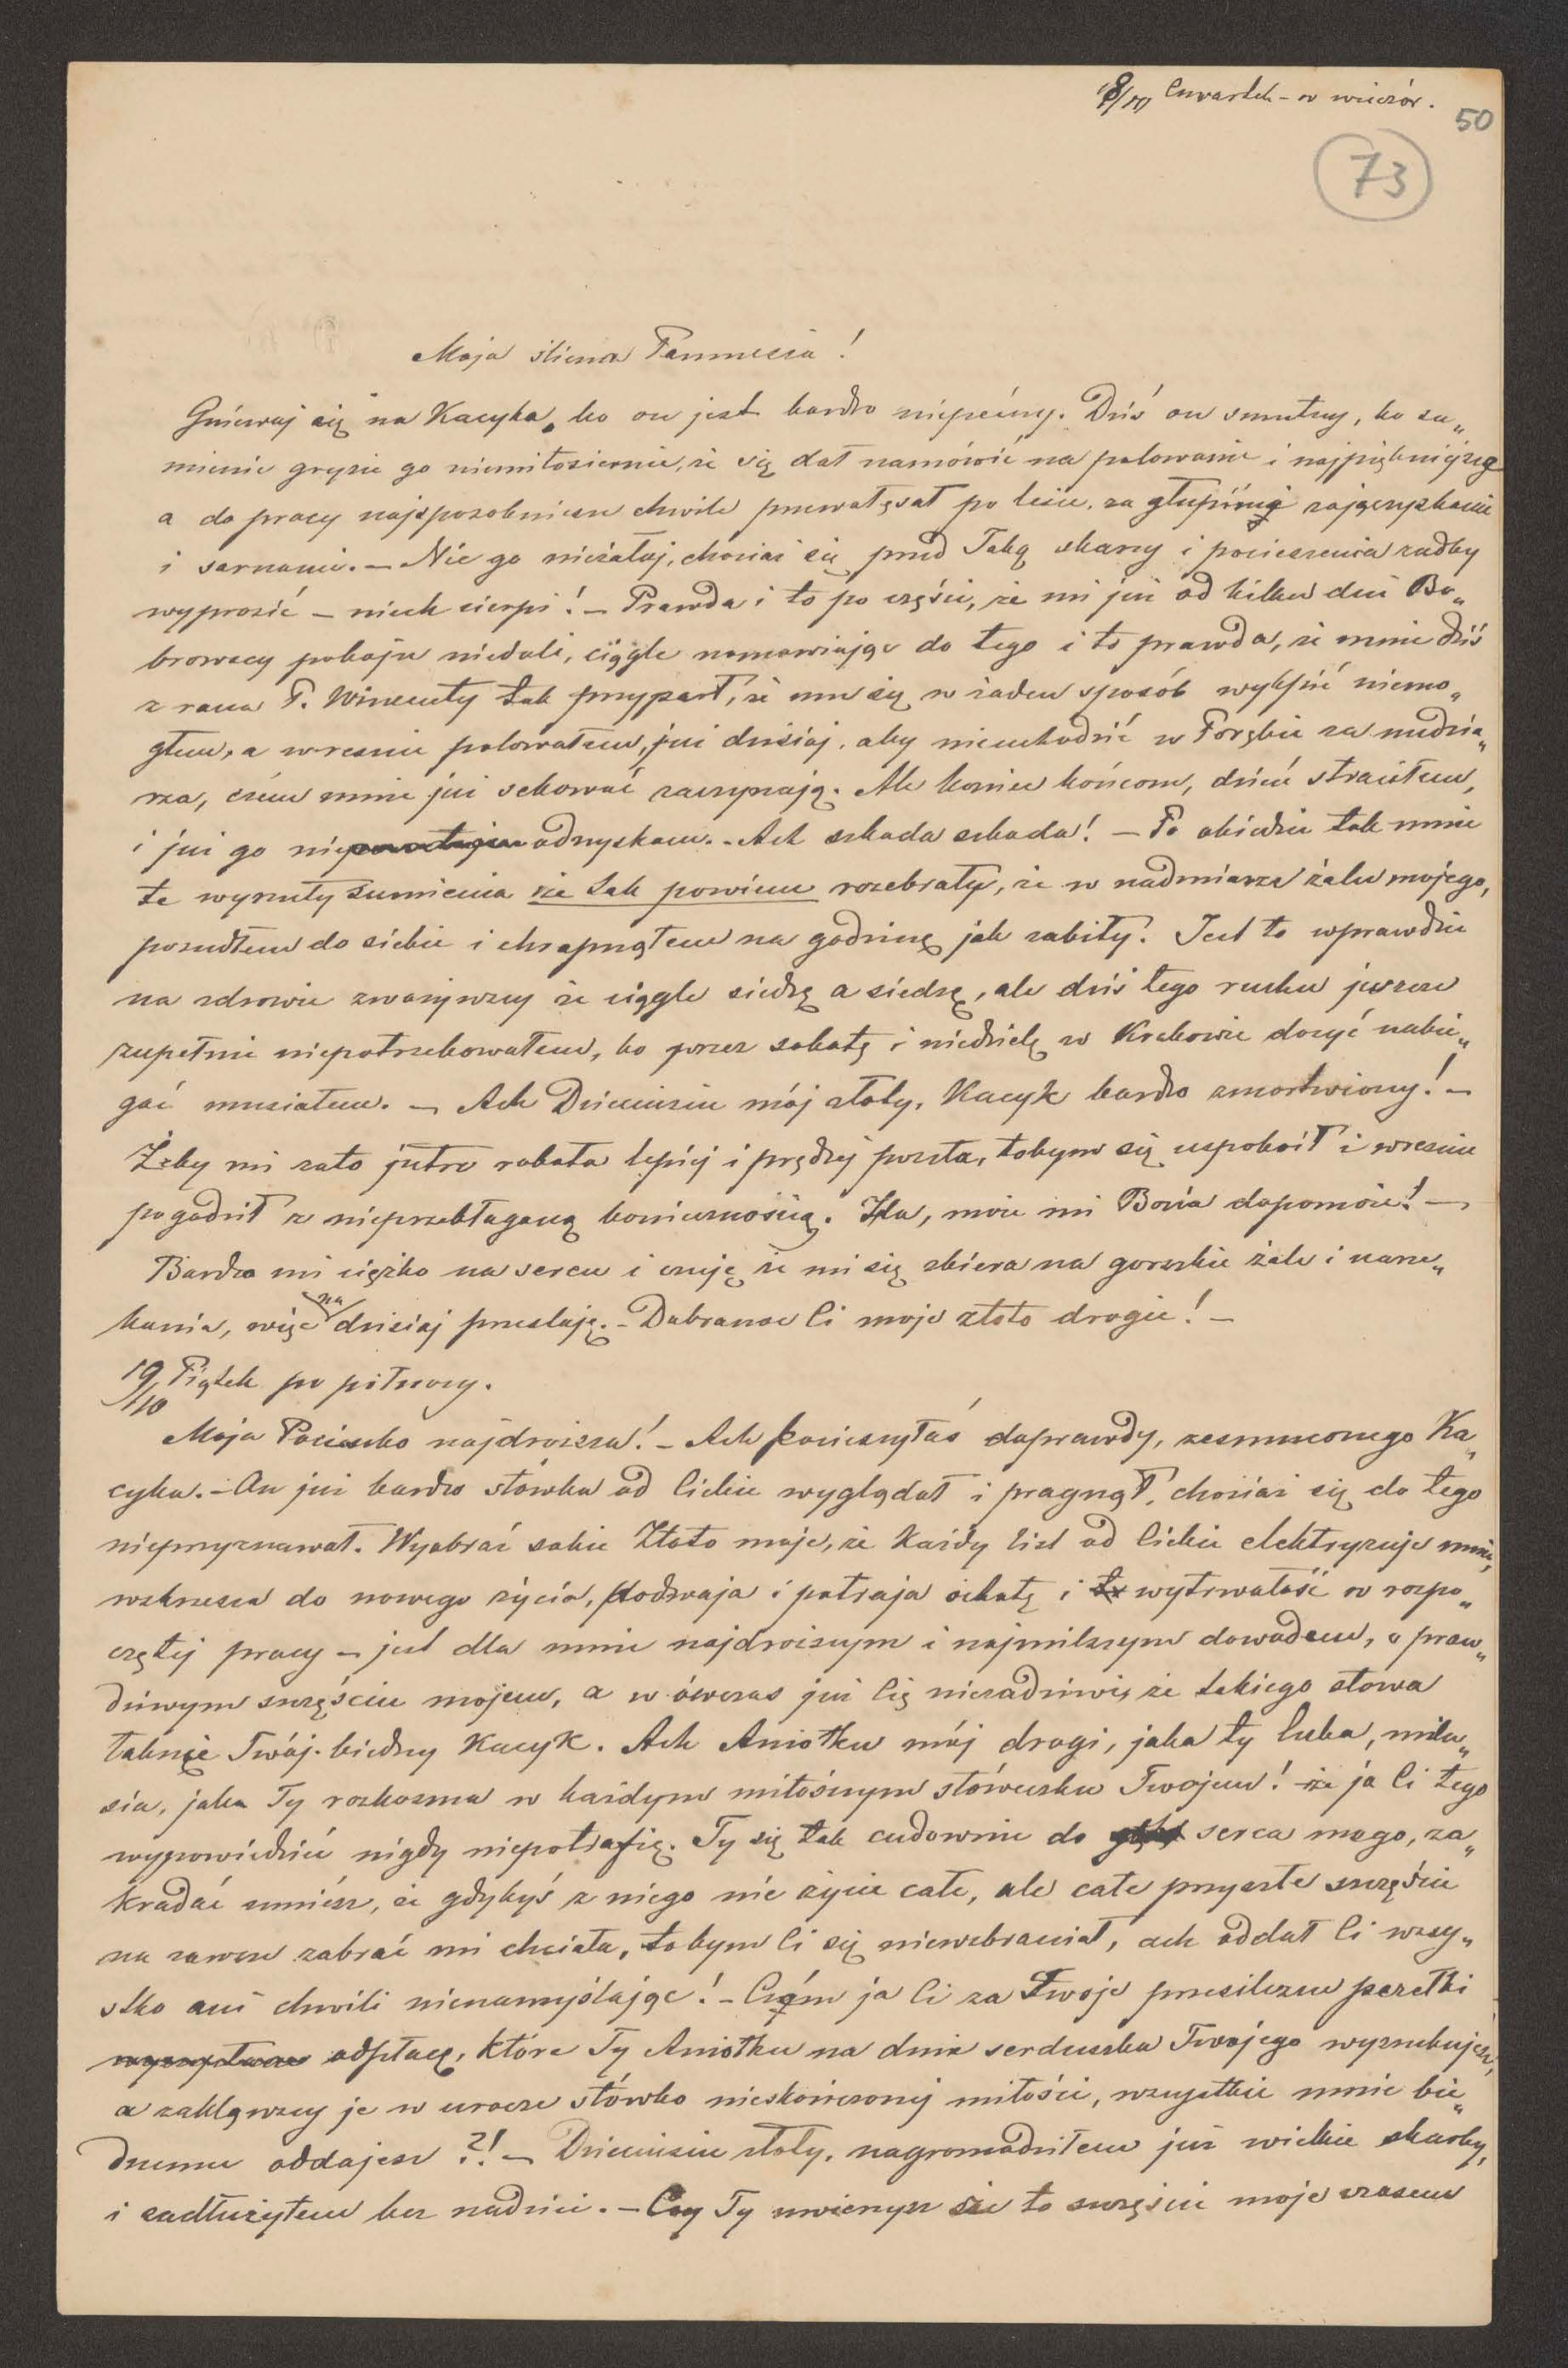 18/10 Czwartek - w wieczór.
50
73
Moja śliczna Pannusiu!
Gniewaj się na Kacyka, bo on jest bardzo niepoćciwy. Dziś on smutny, bo su„
mienie gryzie go niemiłosiernie, że się dał namówić na polowanie i najpiękniejszą
a do pracy najsposobniesze chwile przewałęsał po lesie, za głupiemi zajączyskami
i sarnami. – Nic go nieżałuj, chociaż się przed Tobą skarży i pocieszenia radby
wyprosić – niech cierpi! – Prawda i to po części, że mi już od kilku dni Bo„
browscy pokoju niedali, ciągle namawiając do tego i to prawda, że mnie dziś
z rana P. Wincenty tak przyparł, że mu się w żaden sposób wykpić niemo„
głem, a wreszcie polowałem już dzisiaj, aby nieuchodzić w Porębie za nudzia„
rza, czém mnie już sekować zaczynają. Ale koniec końcem, dzień straciłem,
i już go nie odzyskam. - Ach szkoda szkoda! – Po obiedzie tak mnie
te wyrzuty sumienia że tak powiem rozebrały, że w nadmiarze żalu mojego,
poszedłem do siebie i chrapnąłem na godzinę jak zabity. Jest to wprawdzie
na zdrowie zważywszy że ciągle siedzę a siedzę, ale dziś tego ruchu jeszcze
zupełnie niepotrzebowałem, bo przez sobotę i niedzielę w Krakowie dosyć nabie„
gać musiałem. – Ach Dzieciusiu mój złoty, Kacyk bardzo zmartwiony! –
Żeby mi zato jutro robota lepiéj i prędzej poszła, tobym się uspokoił i wreszcie
pogodził z nieprzebłaganą koniecznością. Ha, może mi Bozia dopomoże! –
Bardzo mi ciężko na sercu i czuję że mi się zbiera na gorzkie żale i narze„
kania, więc na dzisiaj przestaję. - Dobranoc Ci moje złoto drogie! –
19/10 Piątek po północy.
Moja Pociecho najdroższa! - Ach pocieszyłaś doprawdy, zesmuconego Ka„
cyka. - On już bardzo słówka od Ciebie wyglądał i pragnął, chociaż się do tego
nieprzyznawał. Wyobraź sobie Złoto moje, że każdy list od Ciebie elektryzuje mnie,
wskrzesza do nowego życia, podwaja i potraja ochotę i wytrwałość w rozpo„
czętej pracy – jest dla mnie najdroższym i najmilszym dowodem, o praw„
dziwym szczęściu mojem, a w ówczas już Cię niezadziwi, że takiego słowa
łaknie Twój biedny Kacyk. Ach Aniołku mój drogi, jaka ty luba, milu„
sia, jaka Ty rozkoszna w każdym miłośnym słóweczku Twojem! że ja Ci tego
wypowiedzieć nigdy niepotrafię. Ty się tak cudownie do serca mego, za„
kradać umiész, że gdybyś z niego nie życie całe, ale całe przyszłe szczęście
na zawsze zabrać mi chciała, tobym Ci się niewzbraniał, ach oddał Ci wszy„
stko ani chwili nienamyślając! - Czém ja Ci za Twoje prześliczne perełki
odpłacę, które Ty Aniołku na dnie serduszka Twojego wyszukujesz,
a zakląwszy je w urocze słówko nieskończonej miłości, wszystkie mnie bie„
dnemu oddajesz ?! – Dzieciusiu złoty, nagromadziłem już wielkie skarby,
i zadłużyłem bez nadziei. – Czy Ty uwierzysz że to szczęście moje czasem